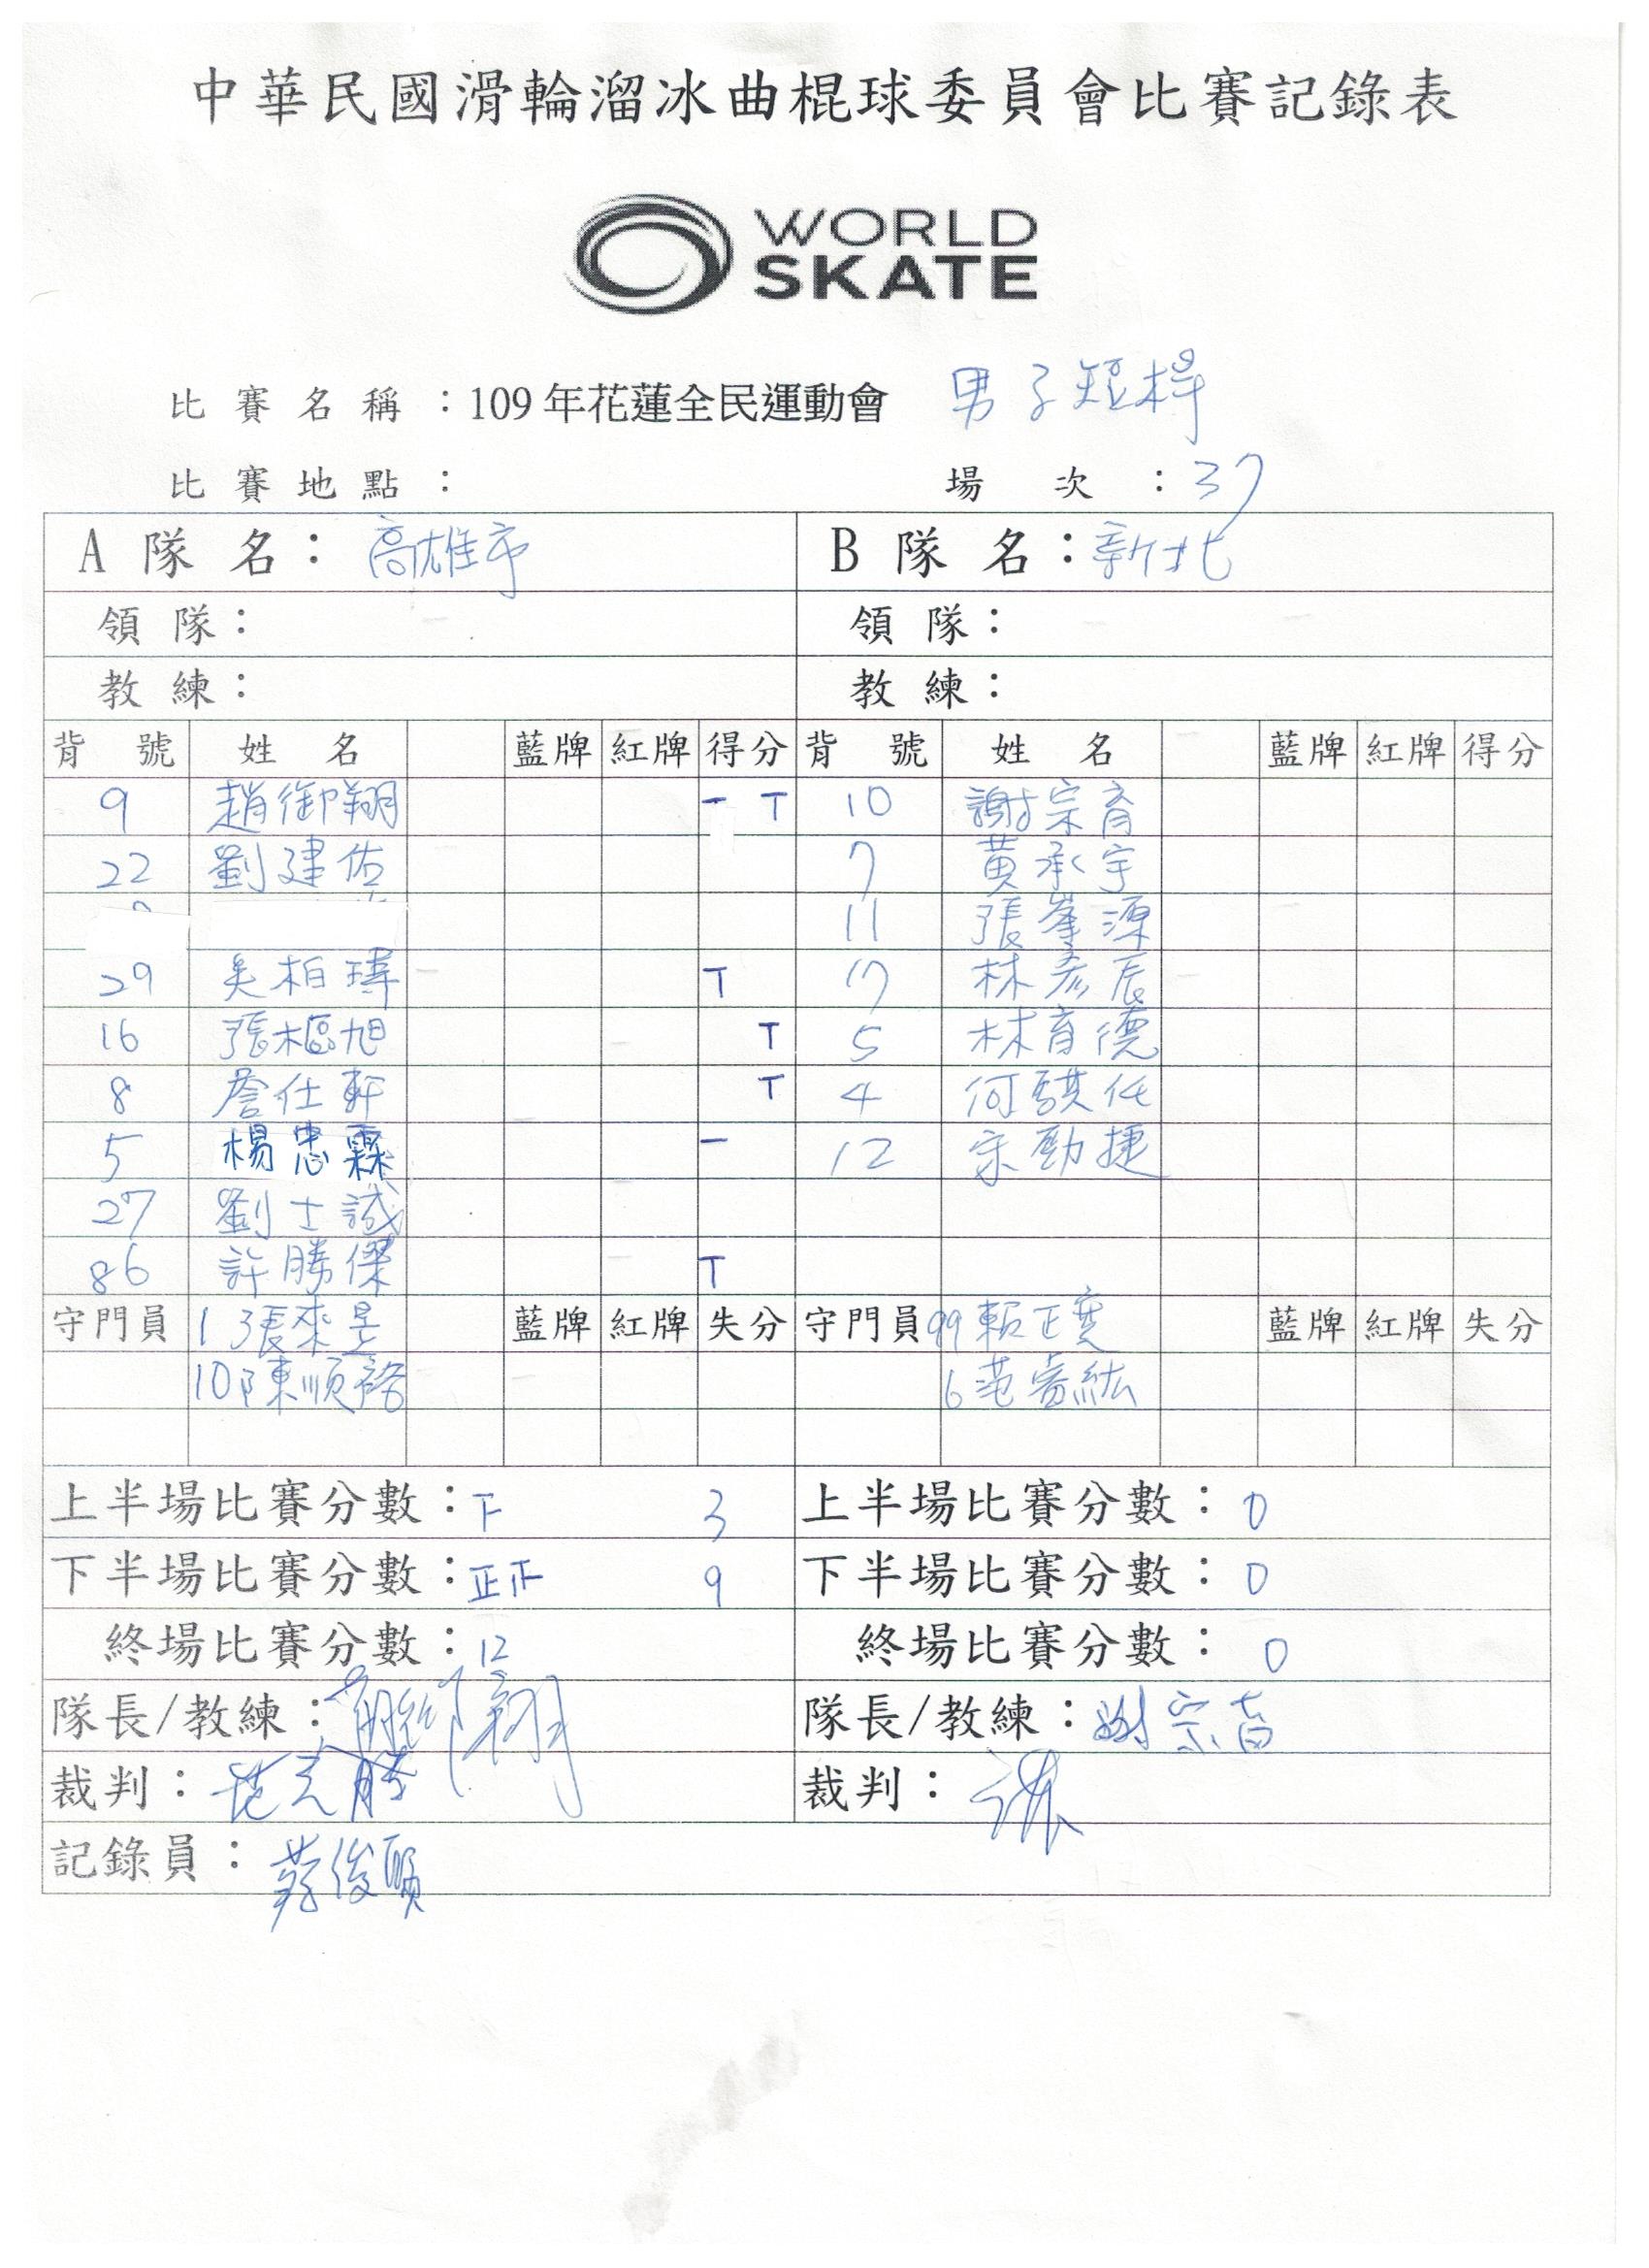 中華民國滑輪溜冰曲棍球委員會比賽記錄表
WORLD
SKATE
比賽名稱：109年花蓮全民運動會 男子短桿
比賽地點： 場次：37
A隊名：高雄市 B隊名：新北
領隊： 領隊：
教練： 教練：
背號 姓名 藍牌 紅牌 得分 背號 姓名 藍牌 紅牌 得分
9 趙御翔 一 T 10 謝宗育
22 劉建佑 7 黃承宇
11 張峯源
29 吳柏瑋 T 17 林彥辰
16 張樞旭 T 5 林育德
8 詹仕軒 T 4 何騏任
5 楊忠霖 一 12 宋勁捷
27 劉士誠
86 許勝傑 T
守門員 1 張 藍牌 紅牌 失分 守門員 99 賴正 藍牌 紅牌 失分
10 陳順 6 范 紘
上半場比賽分數：下 3 上半場比賽分數：0
下半場比賽分數：正正 9 下半場比賽分數：0
終場比賽分數：12 終場比賽分數：0
隊長/教練： 隊長/教練：謝宗育
裁判： 裁判：
記錄員：